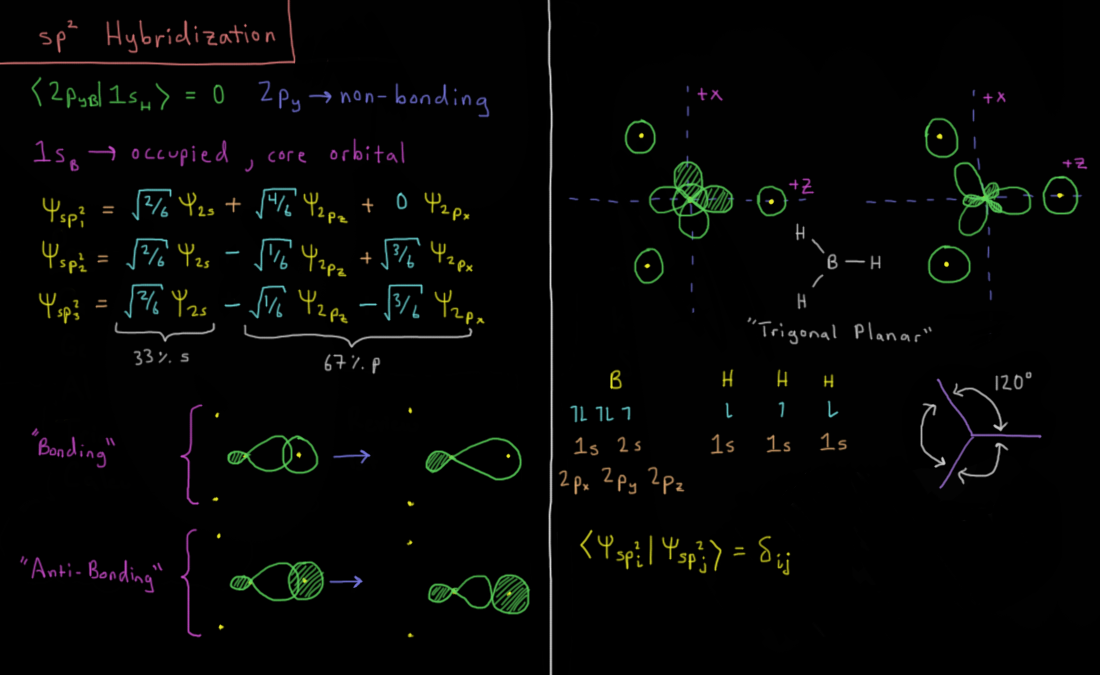 sp² Hybridization
⟨2pyB|1sH⟩ = 0 2py → non-bonding
1sB → occupied, core orbital
Ψsp²₁ = √2/6 Ψ2s + √4/6 Ψ2pz + 0 Ψ2px
Ψsp²₂ = √2/6 Ψ2s − √1/6 Ψ2pz + √3/6 Ψ2px
Ψsp²₃ = √2/6 Ψ2s − √1/6 Ψ2pz − √3/6 Ψ2px
33% s 67% p
"Bonding"
"Anti-Bonding"
+x
+z
+x
+z
H
B — H
H
"Trigonal Planar"
B H H H
1↿⇂ ↿⇂ ↿ ⇂ ↿ ⇂
1s 2s 1s 1s 1s
2px 2py 2pz
120°
⟨Ψsp²ᵢ|Ψsp²ⱼ⟩ = δij